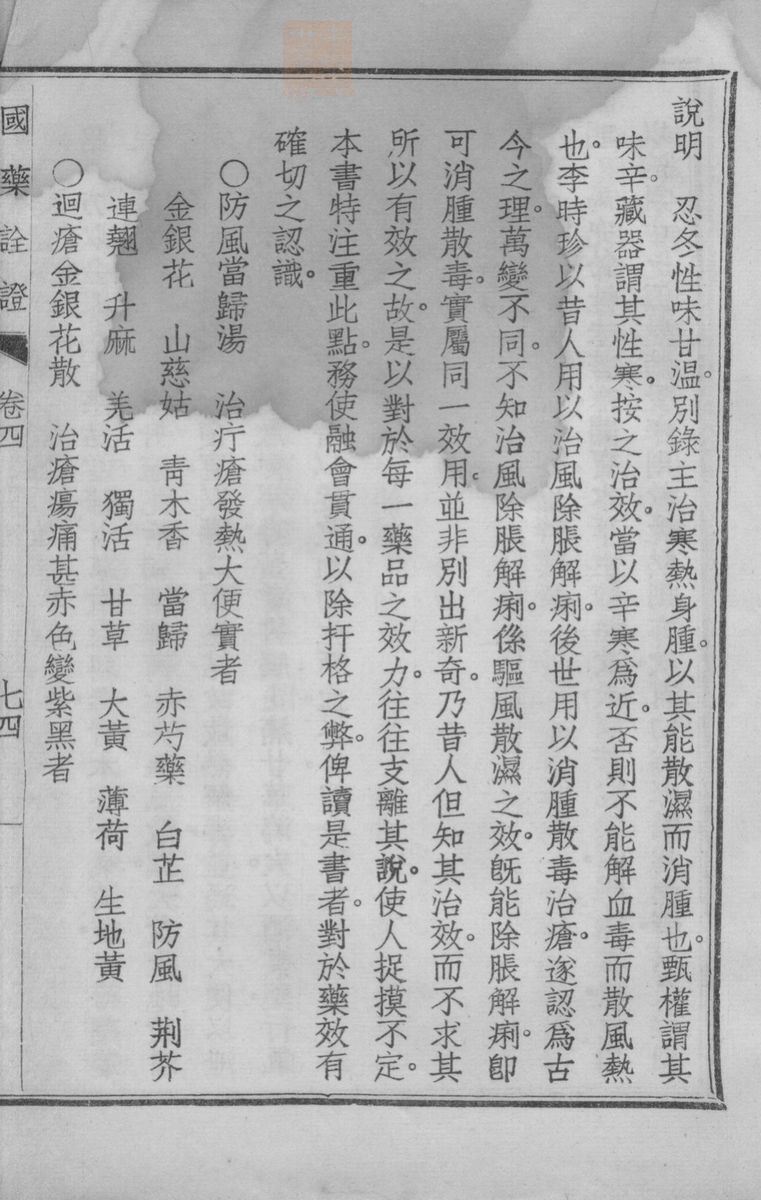 說明　忍冬性味甘溫。別錄主治寒熱身腫。以其能散濕而消腫也。甄權謂其
味辛。藏器謂其性寒。按之治效。當以辛寒爲近。否則不能解血毒而散風熱
也。李時珍以昔人用以治風除脹解痢。後世用以消腫散毒治瘡。遂認爲古
今之理。萬變不同。不知治風除脹解痢。係驅風散濕之效。旣能除脹解痢。卽
可消腫散毒。實屬同一效用。並非別出新奇。乃昔人但知其治效。而不求其
所以有效之故。是以對於每一藥品之效力。往往支離其說。使人捉摸不定。
本書特注重此點。務使融會貫通。以除扞格之弊。俾讀是書者。對於藥效有
確切之認識。
〇防風當歸湯　治疔瘡發熱大便實者
金銀花　山慈姑　靑木香　當歸　赤芍藥　白芷　防風　荆芥
連翹　升麻　羌活　獨活　甘草　大黃　薄荷　生地黃
〇迴瘡金銀花散　治瘡瘍痛甚赤色變紫黑者
國藥詮證　卷四　七四